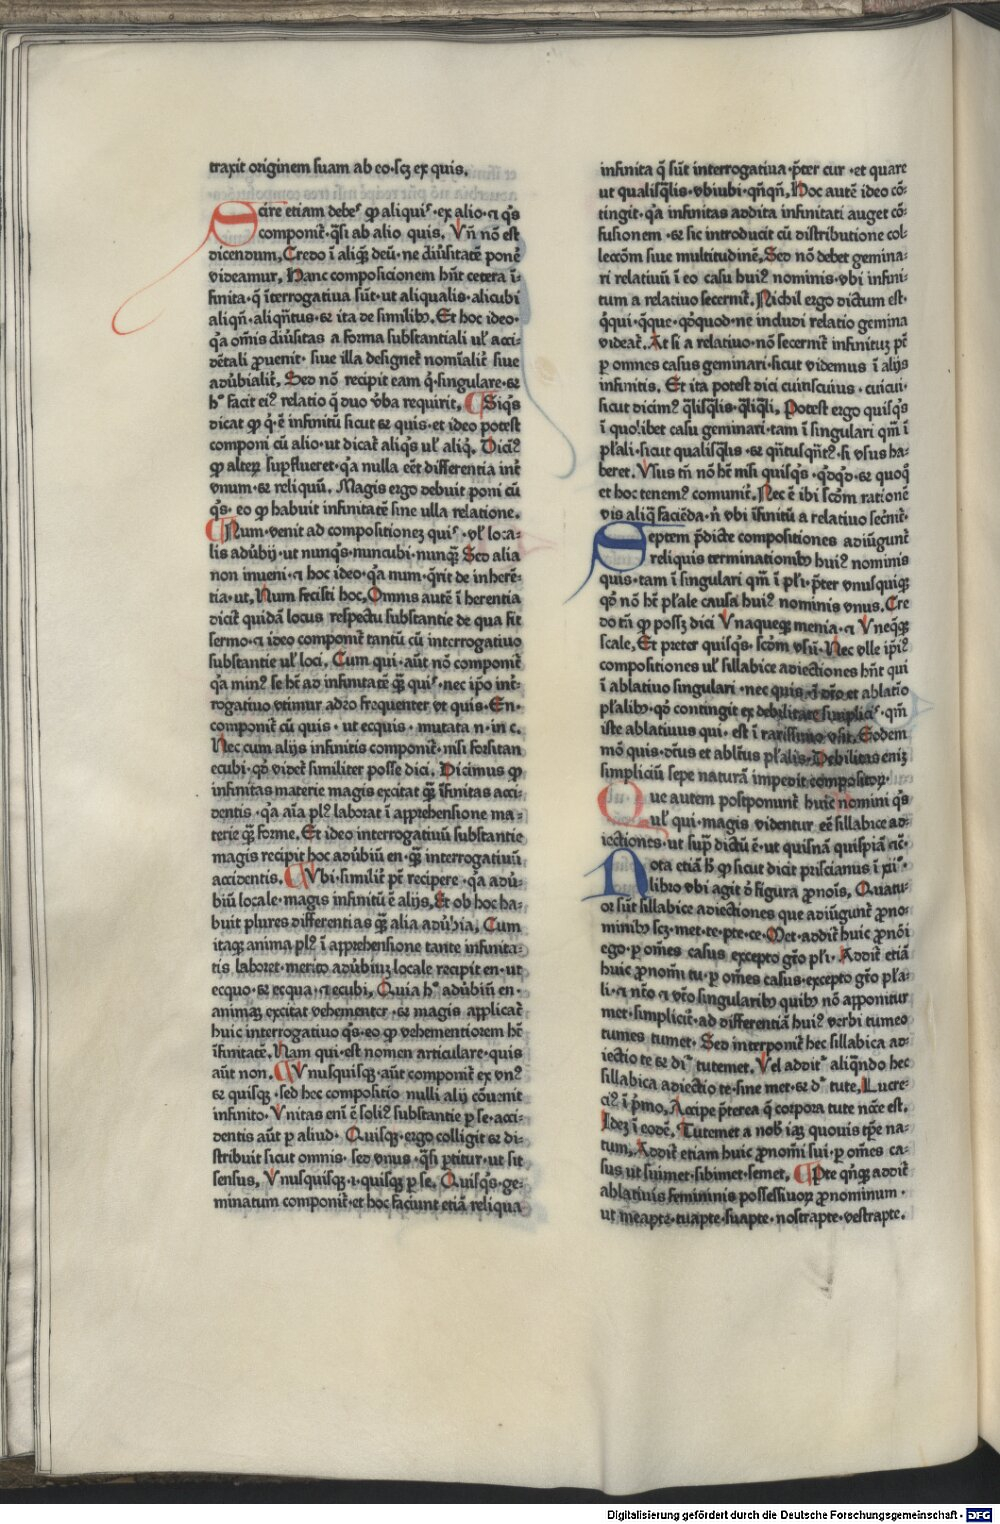 traxit originem suam ab eo·scꝫ ex quis.
Scire etiam debeˢ ꝙ aliquiˢ·ex alio·⁊ qͥs
componit̉·qͣsi ab alio quis. Vn̄ nō est
dicendum, Credo ī aliqͣꝫ deū·ne diūsitatē ponē
videamur, Hanc composicionem hn̄t cetera ī⸗
finita·q̄ īterrogatiua sūt·ut aliqualis·alicubi
aliqn̄·aliqn̄tus·⁊ ita de similibꝫ. Et hoc ideo·
qꝛ om̄is diūsitas a forma substantiali ul̉ acci⸗
dētali ꝓuenit· siue illa designet̉ nomīalit̉ siue
adūbialit̉, Sed nō recipit eam qͥ·singulare·⁊
hͦ facit eiꝰ relatio q̄ duo v̉ba requirit, ¶Siqͥs
dicat ꝙ qͥ·ē infinitū sicut ⁊ quis·et ideo potest
componi cū alio·ut dicat̉ aliqͥs ul̉ aliqͥ. Dicīꝰ
ꝙ alteꝝ suꝑflueret·qꝛ nulla eēt differentia int̉
vnum·⁊ reliquū. Magis ergo debuit poni cū
qͥs· eo ꝙ habuit infinitatē sine ulla relatione.
¶Num·venit ad compositioneꝫ quiˢ·ul̉ loca⸗
lis adūbij·ut nunqͥs·nuncubi·nunqͣꝫ Sed alia
non inueni·⁊ hoc ideo·qꝛ num·q̄rit de inherē⸗
tia·ut, Num fecisti hoc, Omnis autē ī herentia
dicit̉ quidā locus respectu substantie de qua fit
sermo·⁊ ideo componit̉ tantū cū interrogatiuo
substantie ul̉ loci, Cum qui·aūt nō componit̉
qꝛ minꝰ se hꝫ ad infinitatē qͣꝫ quiˢ·nec ip̄o int̉⸗
rogatiuo vtimur adeo frequenter vt quis·En·
componit̉ cū quis·ut ecquis·mutata n·in c.
Nec cum alijs infinitis componit̉·nisi forsitan
ecubi·qd̉ videt̉ similiter posse dici, Dicimus ꝙ
infinitas materie magis excitat qͣꝫ īfinitas acci⸗
dentis·qꝛ aīa plꝰ laborat ī apprehensione ma⸗
terie qͣꝫ forme, Et ideo interrogatiuū substantie
magis recipit hoc adūbiū en·qͣꝫ interrogatiuū
accidentis. ¶Vbi·similit̉ pt̄ recipere·qꝛ adū⸗
biū locale·magis infinitū ē alijs, Et ob hoc ha⸗
buit plures differentias qͣꝫ alia adūbia, Cum
itaqꝫ anima plꝰ ī apprehensione tante infinita⸗
tis laboret·merito adūbiuꝫ locale recipit en·ut
ecquo·⁊ ecqua·⁊ ecubi, Quia hͦ adūbiū en·
animaꝫ excitat vehementer·⁊ magis applicat̉
huic interrogatiuo qͥs·eo ꝙ vehementiorem hꝫ
īfinitatē, Nam qui·est nomen articulare·quis
aūt non. ¶Vnusquisqꝫ·aūt componit̉ ex vnꝰ
⁊ quisqꝫ·sed hec compositio nulli alij cōuenit
infinito·Vnitas enī ē soliꝰ substantie ꝑ se·acci⸗
dentis aūt ꝑ aliud·Quisqꝫ·ergo colligit ⁊ di⸗
stribuit sicut omnis·sed vnus·qͣsi ꝑtitur·ut sit
sensus, Vnusquisqꝫ·ı·quisqꝫ ꝑ se, Quisqͥs·ge⸗
minatum componit̉·et hoc faciunt etiā reliqua
infinita q̄ sūt interrogatiua·p̄ter cur·et quare
ut qualisqͣlis·vbiubi·qn̄qn̄, Hoc autē ideo cō⸗
tingit·qꝛ infinitas addita infinitati auget cō⸗
fusionem·⁊ sic introducit cū distributione col⸗
lectōm siue multitudinē, Sed nō debet gemina⸗
ri relatiuū ī eo casu huiꝰ nominis·vbi infini⸗
tum a relatiuo secernit̉. Nichil ergo dictum est·
qͥqui·q̄que·qd̉quod·ne includi relatio gemina
videat̉. At si a relatiuo·nō secernit̉ infinituꝫ pt̄
ꝑ omnes casus geminari·sicut videmus ī alijs
infinitis, Et ita potest dici cuiuscuius·cuicui·
sicut dicimꝰ qͣlisqͣlis·qͣliqͣli, Potest ergo quisqͥs
ī quolibet casu geminari·tam ī singulari qͣm ī
pl̉ali·sicut qualisqͣlis·⁊ qn̄tusqn̄tꝰ·si vsus ha⸗
beret. Vsus tn̄ nō hꝫ nisi quisqͥs·qd̉qd̉·⁊ quoqͦ
et hoc tenemꝰ comunit̉. Nec ē ibi scōm rationē
vis aliq̄ faciēda·n̉ vbi īfinitū a relatiuo sec̉nit̉·
Septem p̄dicte compositiones adiūgunt̉
reliquis terminationibꝫ huiꝰ nominis
quis·tam ī singulari qͣm ī pl̉i·p̄ter vnusquisqꝫ
qd̉ nō hꝫ pl̉ale causa huiꝰ nominis vnus. Cre
do tn̄ ꝙ possꝫ dici Vnaqueqꝫ menia·⁊ Vneq̄qꝫ
scale, Et preter quisqͥs·scōm vsū·Nec vlle ip̄iꝰ
compositiones ul̉ sillabice adiectiones hn̄t qui
ī ablatiuo singulari·nec quis·ī dtō et ablatio
pl̉alibꝫ·qd̉ contingit ex debilitate simpliciˢ·qm̄
iste ablatiuus qui·est ī rarissimo vsu. Eodem
mō quis·dt̄us et ablt̄us pl̉alis·Debilitas enīꝫ
simpliciū sepe naturā impedit compositoꝝ·
Que autem postponunt̉ huic nomini qͥs
ul̉ qui·magis videntur eē sillabice ad⸗
iectiones·ut supͣ dictū ē·ut quisnā quispiā ⁊c̄·
Nota etiā hͦ ꝙ sicut dicit priscianus ī xiiͦ·
libro vbi agit d̉ figura ꝓnoīs, Quatu⸗
or sūt sillabice adiectiones que adiūgunt̉ ꝓno⸗
minibꝫ scꝫ·met·te·pte·ce·Met·addit̉ huic ꝓnōi
ego·ꝑ om̄es casus excepto gtō pl̉i·Addit̉ etiā
huic ꝓnomī tu·ꝑ om̄es casus·excepto gtō pl̉a⸗
li·⁊ ntō·⁊ vtō singularibꝫ quibꝫ nō apponitur
met·simplicit̉·ad differentiā huiꝰ verbi tumeo
tumes tumet·Sed interponit̉ hec sillabica ad⸗
iectio te ⁊ diˢ tutemet. Vel additˢ aliqn̄do hec
sillabica adiectio te·sine met·⁊ dˢ tute, Lucre⸗
ciꝰ ī pͥmo, Accipe p̄terea q̄ corpora tute nc̄ce est.
Ideꝫ ī eodē, Tutemet a nob̉ iaꝫ quouis tp̄e na⸗
tum, Addit̉ etiam huic ꝓnomī sui·ꝑ om̄es ca⸗
sus ut suimet·sibimet·semet. ¶Pte qn̄qꝫ addit̉
ablatiuis femininis possessiuoꝝ ꝓnominum·
ut meapte·tuapte·suapte·nostrapte·vestrapte.
Digitalisierung gefördert durch die Deutsche Forschungsgemeinschaft - DFG